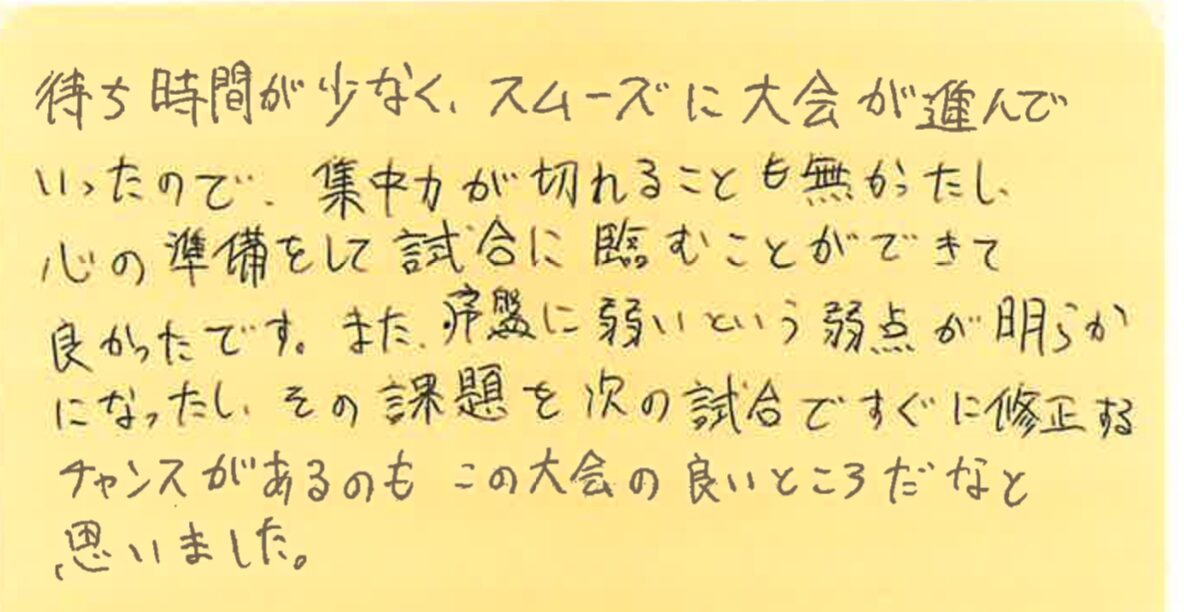 待ち時間が少なく、スムーズに大会が進んで
いったので、集中力が切れることも無かったし、
心の準備をして試合に臨むことができて
良かったです。また、序盤に弱いという弱点が明らか
になったし、その課題を次の試合ですぐに修正する
チャンスがあるのもこの大会の良いところだなと
思いました。